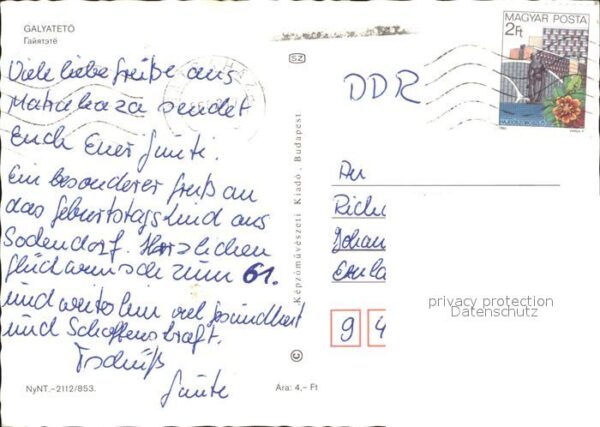 GALYATETŐ
Галятетё
Viele liebe Grüße aus
Matrahaza sendet
Euch Euer Günti.
Ein besonderer Gruß an
das Geburtstagskind aus
Sodendorf. Herzlichen
Glückwunsch zum 61.
und weiterhin viel Gesundheit
und Schaffenskraft.
Tschüß
Günti
NyNT.–2112/853.
Ára: 4,– Ft
SZ
Képzőművészeti Kiadó, Budapest
©
MAGYAR POSTA
2Ft
HAJDÚSZOBOSZLÓ
DDR
An
Johan
9 4
privacy protection
Datenschutz